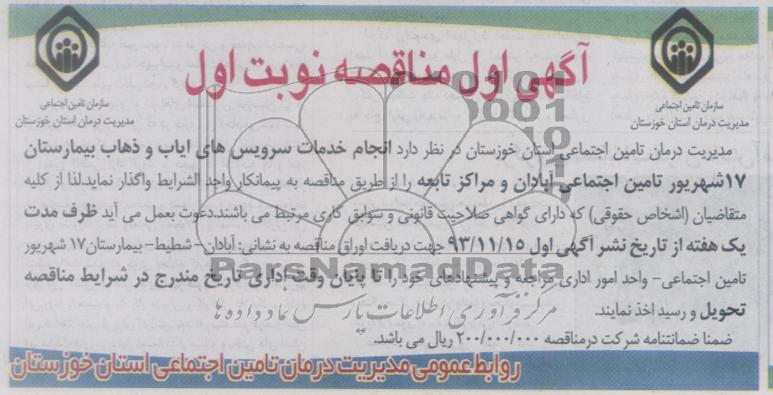 آگهی اول مناقصه نوبت اول
سازمان تامین اجتماعی
مدیریت درمان استان خوزستان
سازمان تامین اجتماعی
مدیریت درمان استان خوزستان
مدیریت درمان تامین اجتماعی استان خوزستان در نظر دارد انجام خدمات سرویس های ایاب و ذهاب بیمارستان
۱۷شهریور تامین اجتماعی آبادان و مراکز تابعه را از طریق مناقصه به پیمانکار واجد الشرایط واگذار نماید.لذا از کلیه
متقاضیان (اشخاص حقوقی) که دارای گواهی صلاحیت قانونی و سوابق کاری مرتبط می باشند.دعوت بعمل می آید ظرف مدت
یک هفته از تاریخ نشر آگهی اول ۹۳/۱۱/۱۵ جهت دریافت اوراق مناقصه به نشانی: آبادان- شطیط- بیمارستان۱۷ شهریور
تامین اجتماعی- واحد امور اداری مراجعه و پیشنهادهای خود را تا پایان وقت اداری تاریخ مندرج در شرایط مناقصه
تحویل و رسید اخذ نمایند.
ضمنا ضمانتنامه شرکت درمناقصه ۲۰۰/۰۰۰/۰۰۰ ریال می باشد.
روابط عمومی مدیریت درمان تامین اجتماعی استان خوزستان
ParsNamadData
مرکز فرآوری اطلاعات پارس نماد داده ها